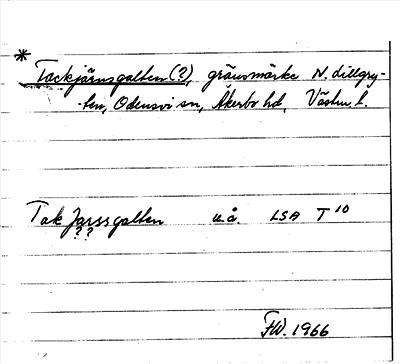 *
Tackjärnsgalten (?), gränsmärke N. Lillgry-
-ten, Odensvi sn, Åkerbo hd, Västm. l.
Tak Jarssgalten u.å. LSA T 10
??
FW. 1966